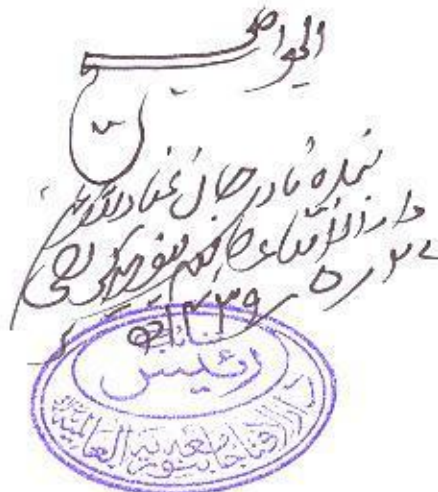 الجواب صحیح
بندہ نادر جان غفا اللہ عنہ
دار الافتاء جامعہ بنوریہ کراچی
۲۷ ر ۵ ر ۱۴۳۹ھ
نائب
رئیس
دار الافتاء جامعہ بنوریہ العالمیہ